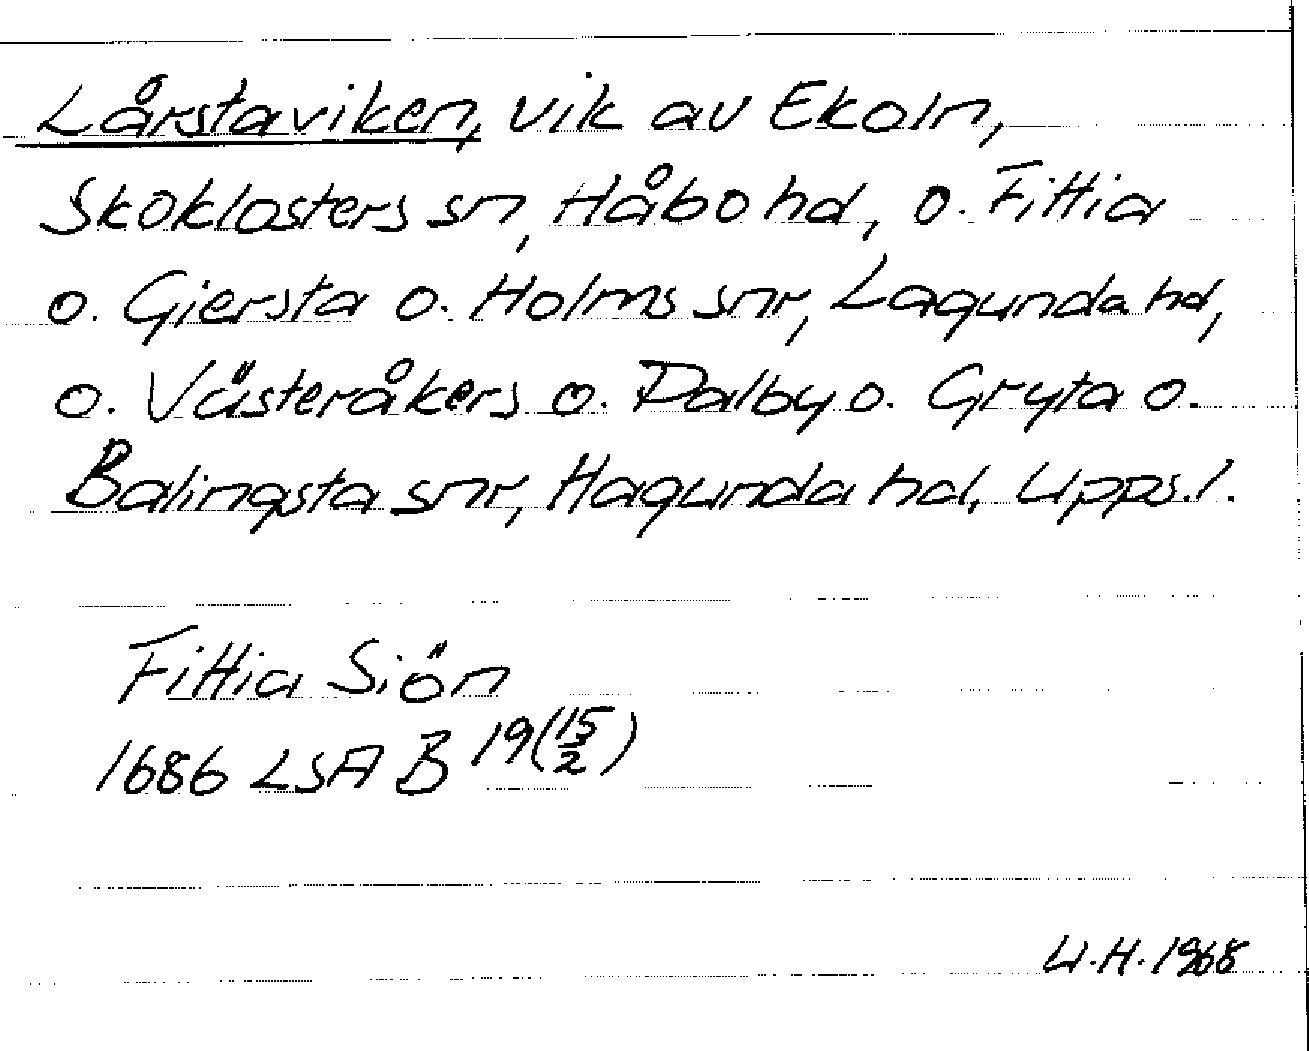 Lårstaviken, vik av Ekoln,
Skoklosters sn, Håbo hd, o. Fittia
o. Giersta o. Holms snr, Lagunda hd,
o. Västeråkers o. Dalby o. Gryta o.
Balingsta snr, Hagunda hd, Upps.l.
Fittia Siön
1686 LSA B 19(15/2)
U.H. 1968